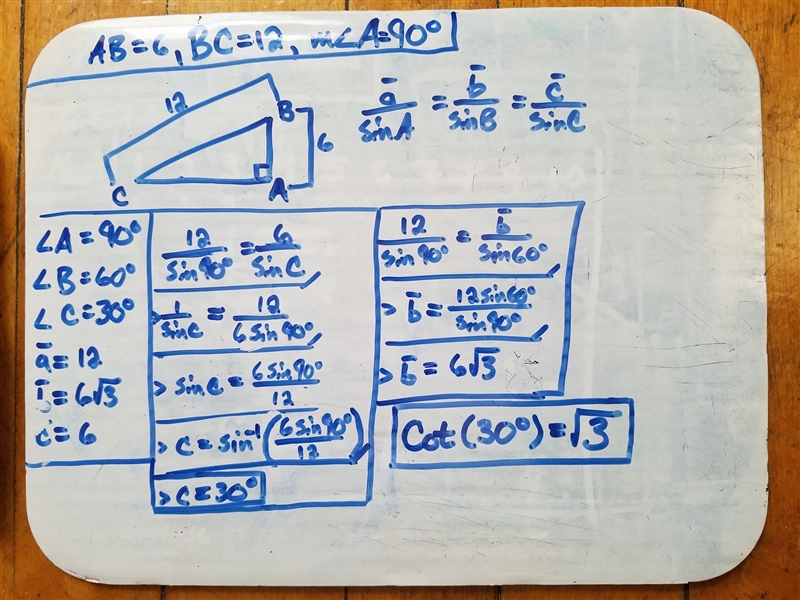 AB=6, BC=12, m∠A=90°
12
B
6
C
A
a̅/sinA = b̅/sinB = c̅/sinC
∠A=90°
∠B=60°
∠C=30°
a̅=12
b̅=6√3
c̅=6
12/sin90° = 6/sinC
> 1/sinC = 12/6sin90°
> sinC = 6sin90°/12
> C = sin⁻¹(6sin90°/12)
> C=30°
12/sin90° = b̅/sin60°
> b̅ = 12sin60°/sin90°
> b̅ = 6√3
Cot(30°)=√3